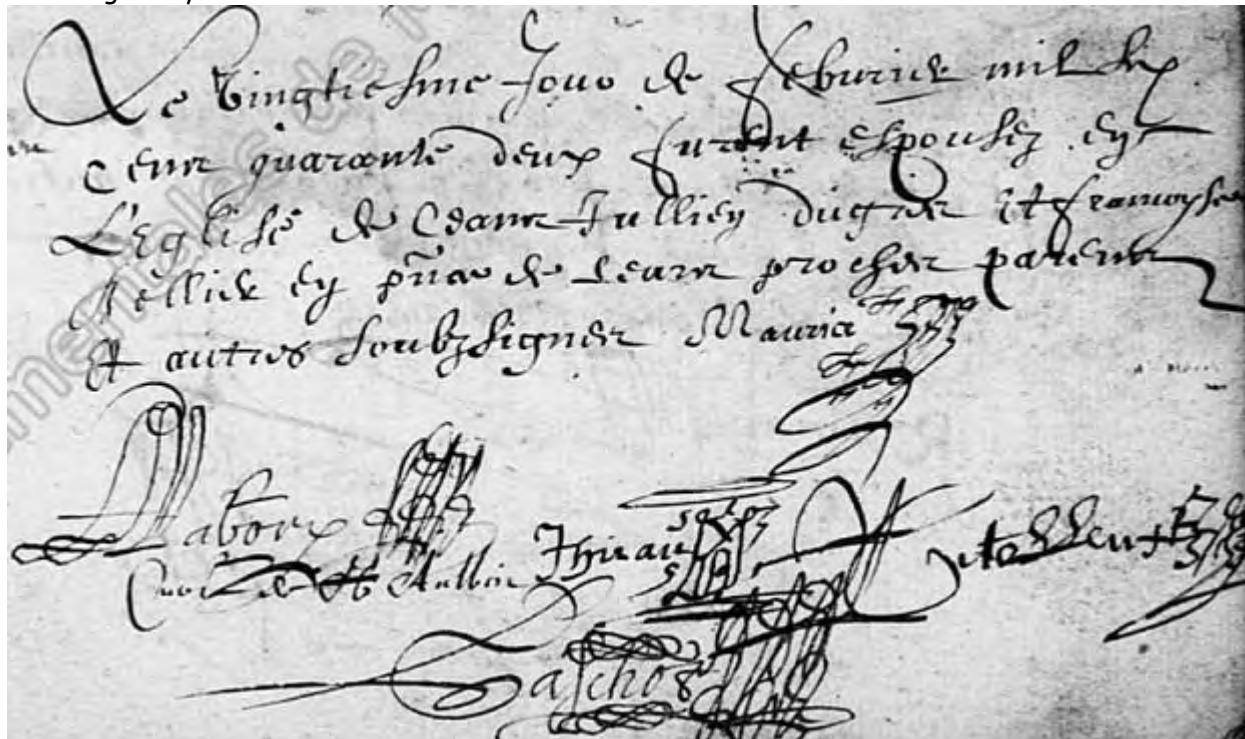 Le vingtiesme jour de febvrier mil six
cens quarante deux furent espousez en
L'Eglise de Ceans Jullien dugué Et francoyse
tellier en pñce de Leurs proches parens
Et autres soubzsignez Maurice
Thieau
Curé de St Aulbin
Gaschot